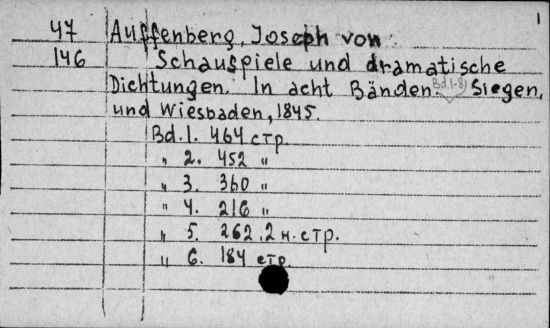 1
47 Auffenberg, Joseph von
146 Schauspiele und dramatische
Dichtungen. In acht Bänden. (Bd. 1-8) Siegen,
und Wiesbaden, 1845.
Bd. 1. 464 стр.
" 2. 452 "
" 3. 360 "
" 4. 216 "
" 5. 262, 2 н. стр.
" 6. 184 стр.